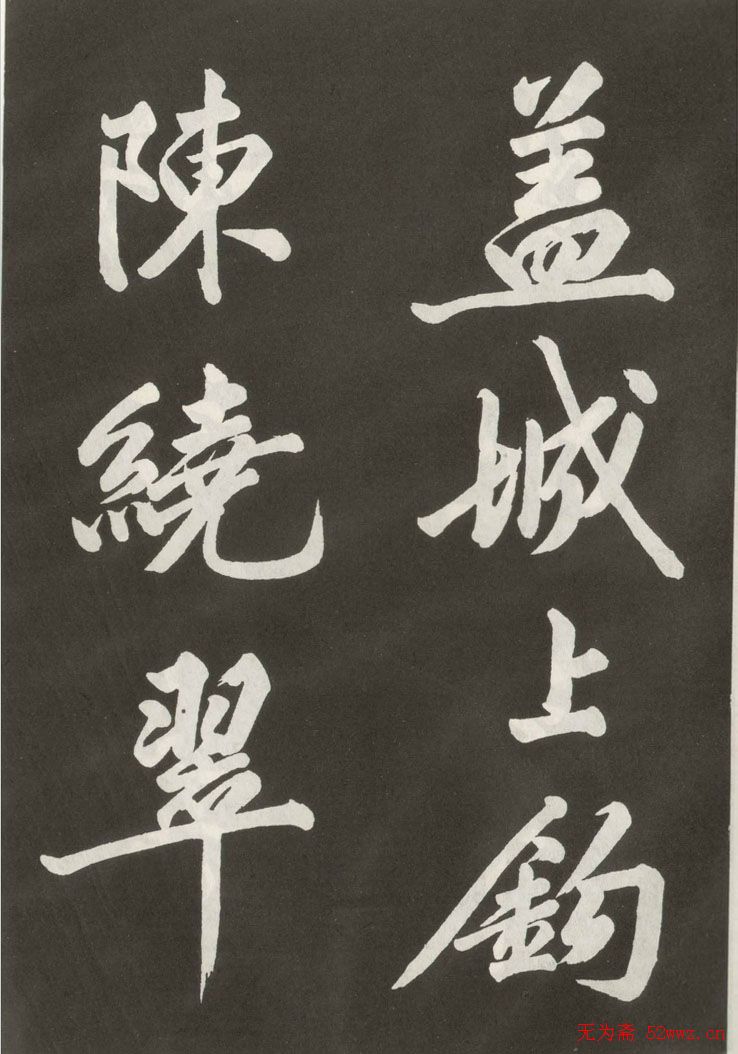 盖城上鈎
陳繞翠
无为斋 52wwz.cn